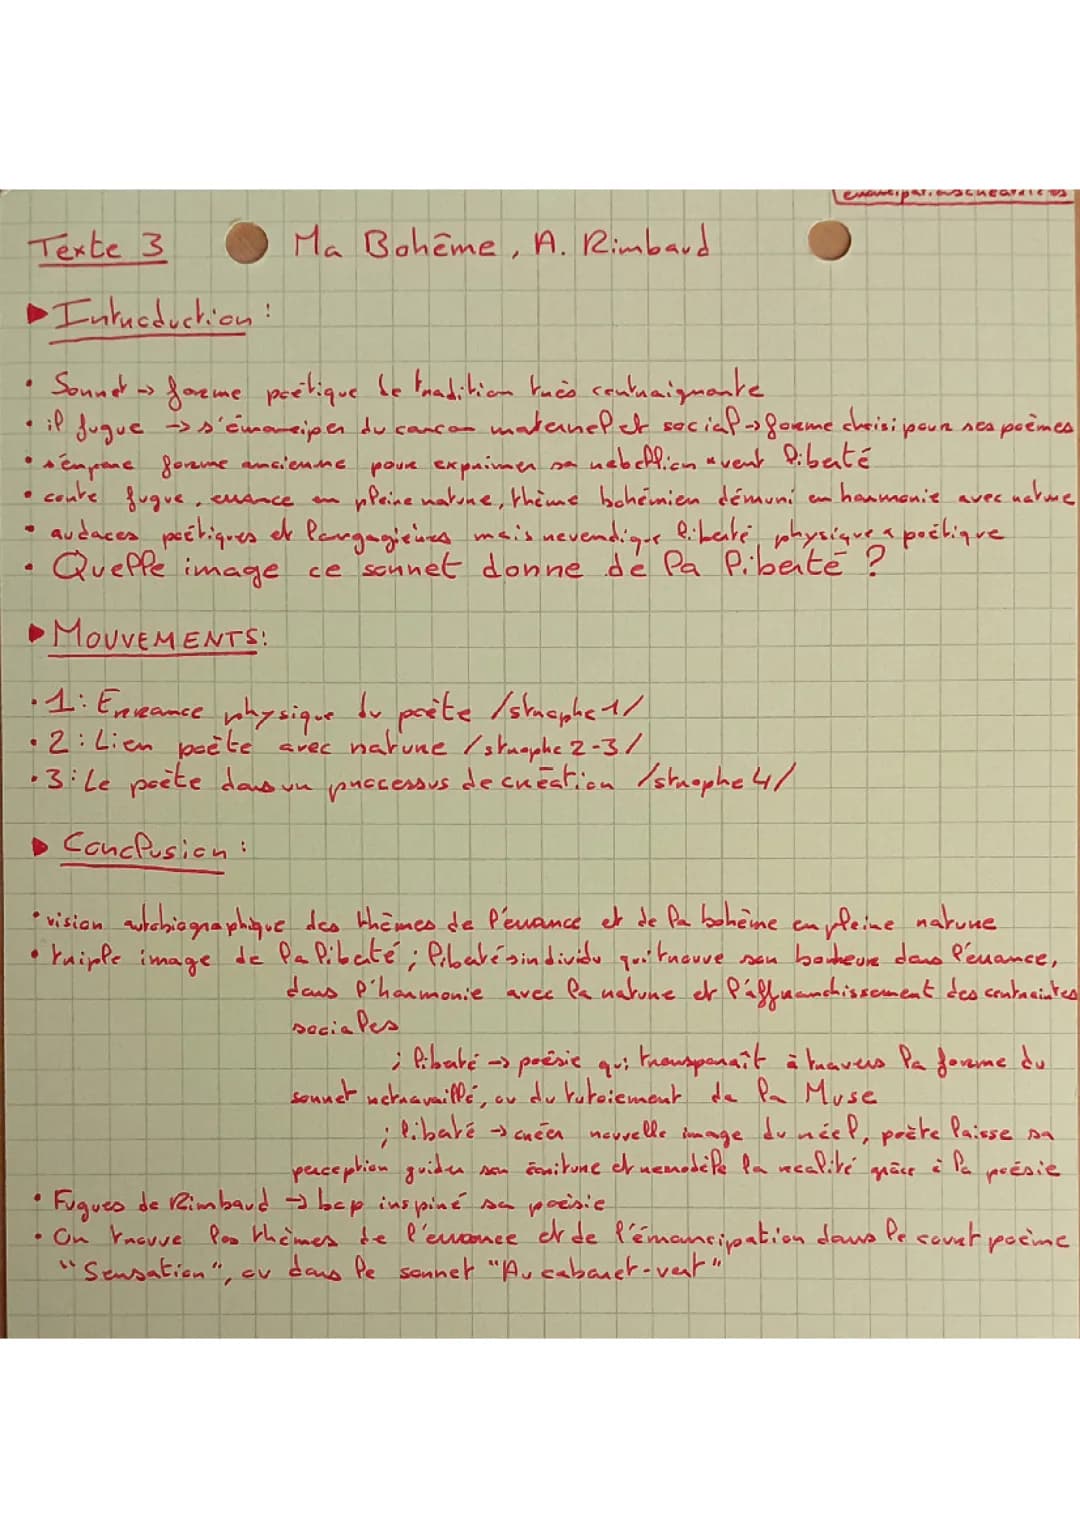 émancipations créatrices
Texte 3 Ma Bohême, A. Rimbaud
▶ Introduction :
• Sonnet → forme poétique de tradition très contraignante
• il fugue → s'émanciper du carcan maternel et social → forme choisi pour ses poèmes
• s'empare forme ancienne pour exprimer sa rebellion & vent liberté
• conte fugue, errance en pleine nature, thème bohémien démuni en harmonie avec nature
• audaces poétiques et langagières mais revendique liberté physique & poétique
• Quelle image ce sonnet donne de la liberté ?
▶ MOUVEMENTS:
• 1 : Errance physique du poète /strophe 1/
• 2 : Lien poète avec nature /strophe 2-3/
• 3 : Le poète dans un processus de création /strophe 4/
▶ Conclusion :
• vision autobiographique des thèmes de l'errance et de la bohème en pleine nature
• triple image de la liberté ; liberté → individu qui trouve son bonheur dans l'errance,
dans l'harmonie avec la nature et l'affranchissement des contraintes
sociales
; liberté → poésie qui transparaît à travers la forme du
sonnet retravaillé, ou du tutoiement de la Muse
; liberté → créer nouvelle image du réel, poète laisse sa
perception guider son écriture et remodèle la realité grâce à la poésie
• Fugues de Rimbaud → bcp inspiré sa poésie
• On trouve les thèmes de l'errance et de l'émancipation dans le court poème
"Sensation", ou dans le sonnet "Au cabaret-vert"